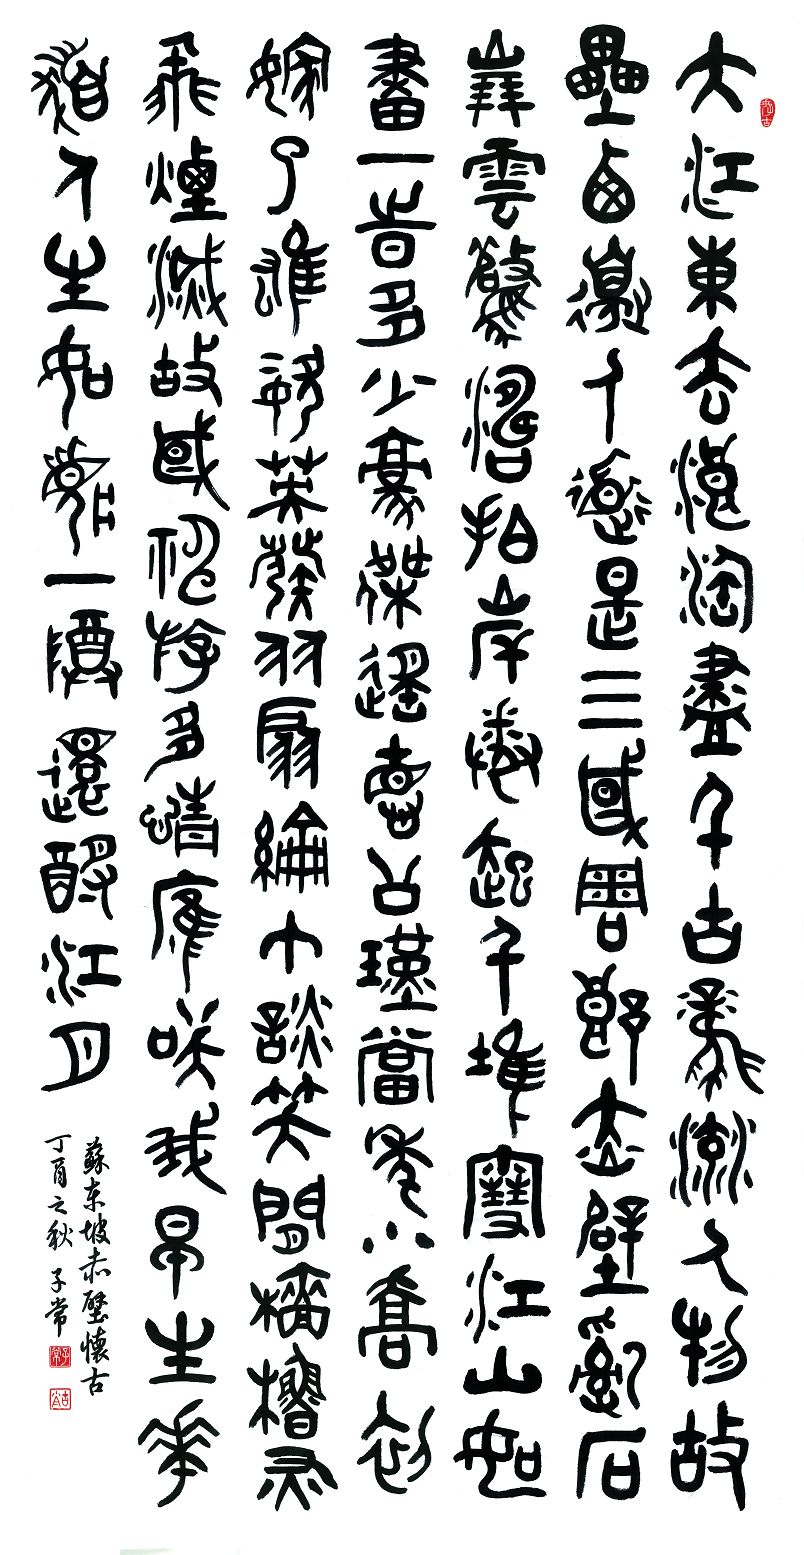 大江東去浪淘盡千古風流人物故
壘西邊人道是三國周郎赤壁亂石
崩雲驚濤拍岸捲起千堆雪江山如
畫一時多少豪傑遙想公瑾當年小喬初
嫁了雄姿英發羽扇綸巾談笑間檣櫓灰
飛煙滅故國神遊多情應笑我早生華
髮人生如夢一樽還酹江月
蘇东坡赤壁懷古
丁酉之秋 子常